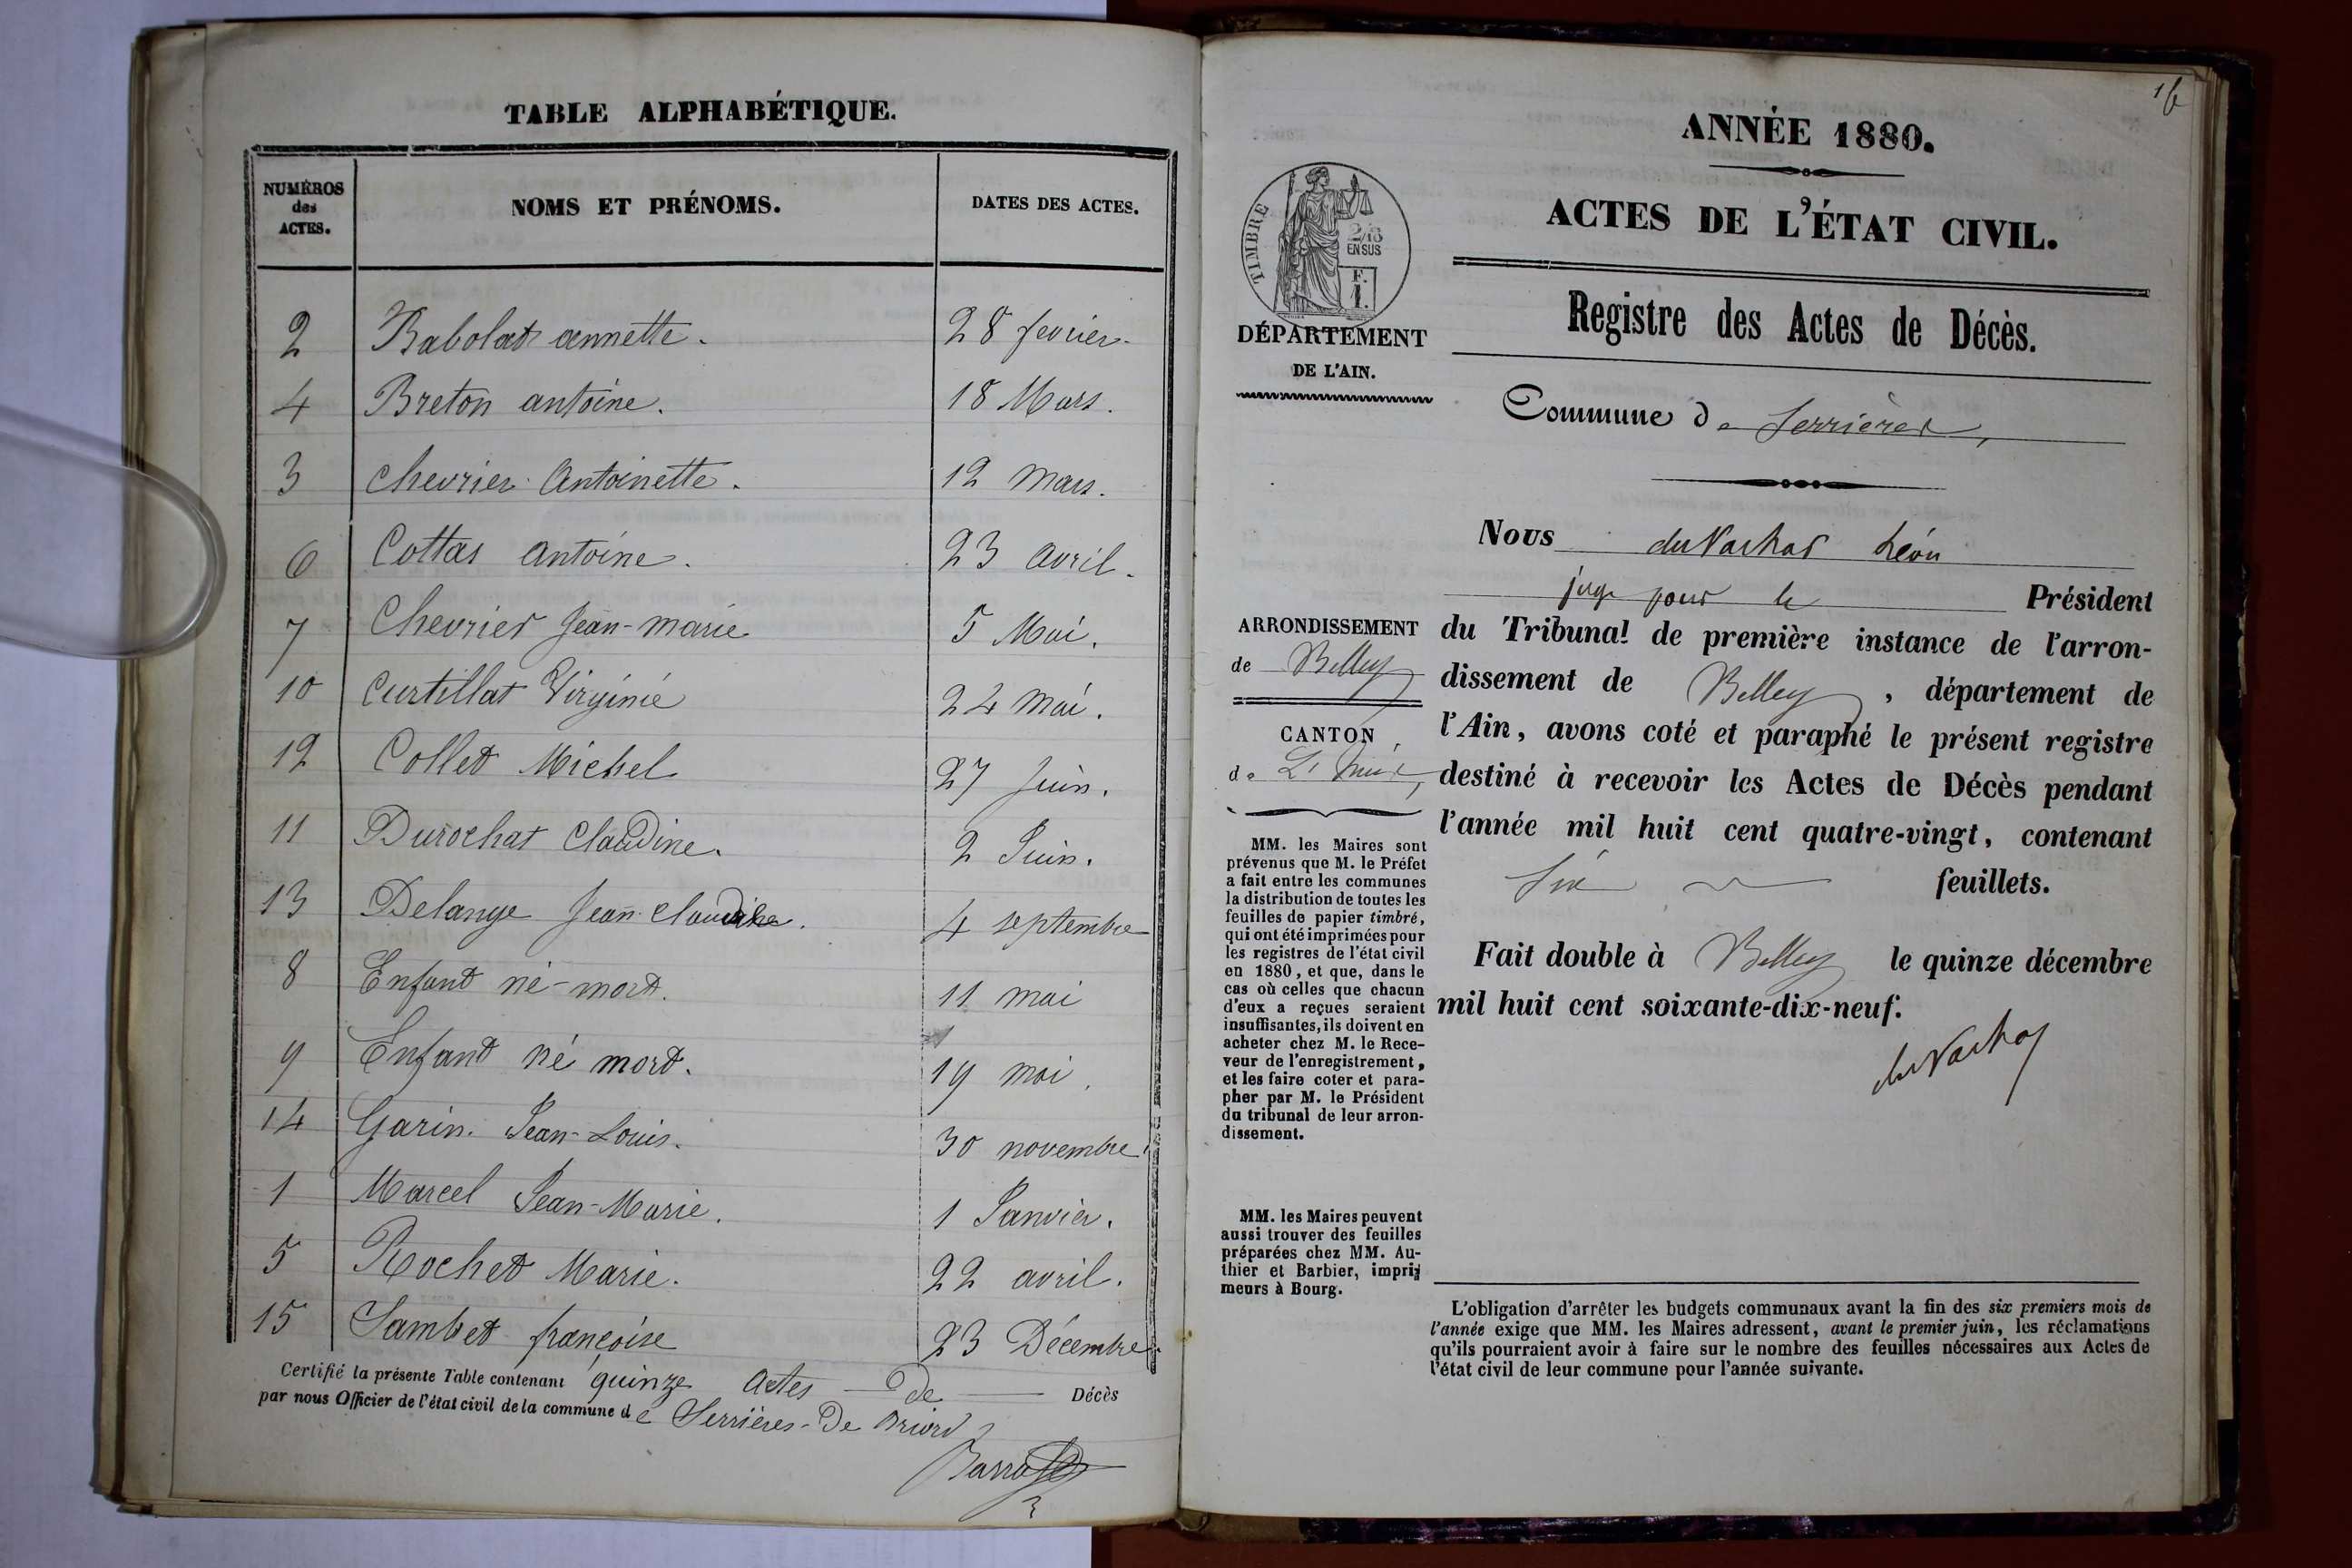 TABLE ALPHABÉTIQUE.
NUMÉROS des ACTES. NOMS ET PRÉNOMS. DATES DES ACTES.
2 Babolat annette. 28 fevrier.
4 Breton antoine. 18 Mars.
3 Chevrier Antoinette. 12 mars.
6 Cottas Antoine. 23 avril.
7 Chevrier Jean-marie 5 Mai.
10 Curtillat Virginie 24 mai.
12 Collet Michel 27 Juin.
11 Durochat Claudine. 2 Juin.
13 Delange Jean Claudine. 4 septembre
8 Enfant né-mort. 11 mai
9 Enfant né mort. 19 mai.
14 Garin. Jean-Louis. 30 novembre
1 Marcel Jean-Marie. 1 Janvier.
5 Rochet Marie. 22 avril.
15 Sambet françoise 23 Décembre.
Certifié la présente Table contenant quinze actes De Décès
par nous Officier de l'état civil de la commune de Serrières-De Briord
16
ANNÉE 1880.
ACTES DE L'ÉTAT CIVIL.
TIMBRE
2/10
EN SUS
F.
1.
DÉPARTEMENT
DE L'AIN.
Registre des Actes de Décès.
Commune de Serrières,
Nous du Vachat Léon
juge pour le Président
du Tribunal de première instance de l'arron-
dissement de Belley, département de
l'Ain, avons coté et paraphé le présent registre
destiné à recevoir les Actes de Décès pendant
l'année mil huit cent quatre-vingt, contenant
six feuillets.
Fait double à Belley le quinze décembre
mil huit cent soixante-dix-neuf.
du Vachat
ARRONDISSEMENT
de Belley
CANTON
de
MM. les Maires sont
prévenus que M. le Préfet
a fait entre les communes
la distribution de toutes les
feuilles de papier timbré,
qui ont été imprimées pour
les registres de l'état civil
en 1880, et que, dans le
cas où celles que chacun
d'eux a reçues seraient
insuffisantes, ils doivent en
acheter chez M. le Rece-
veur de l'enregistrement,
et les faire coter et para-
pher par M. le Président
du tribunal de leur arron-
dissement.
MM. les Maires peuvent
aussi trouver des feuilles
préparées chez MM. Au-
thier et Barbier, impri-
meurs à Bourg.
L'obligation d'arrêter les budgets communaux avant la fin des six premiers mois de
l'année exige que MM. les Maires adressent, avant le premier juin, les réclamations
qu'ils pourraient avoir à faire sur le nombre des feuilles nécessaires aux Actes de
l'état civil de leur commune pour l'année suivante.